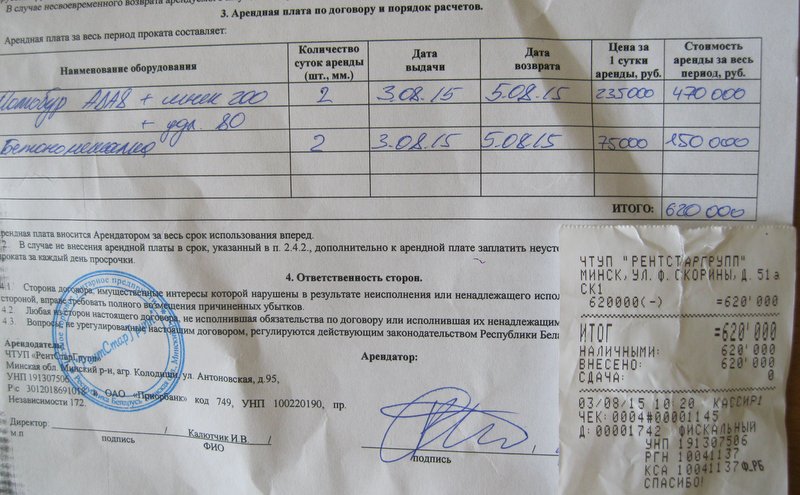 В случае несвоевременного возврата
3. Арендная плата по договору и порядок расчетов.
Арендная плата за весь период проката составляет:
Наименование оборудования
Количество суток аренды (шт., мм.)
Дата выдачи
Дата возврата
Цена за 1 сутки аренды, руб.
Стоимость аренды за весь период, руб.
Мотобур ADA8 + шнек 200 2 3.08.15 5.08.15 235000 470 000
+ удл. 80
Бетономешалка 2 3.08.15 5.08.15 75000 150 000
ИТОГО: 620 000
Арендная плата вносится Арендатором за весь срок использования вперед.
В случае не внесения арендной платы в срок, указанный в п. 2.4.2., дополнительно к арендной плате заплатить
проката за каждый день просрочки.
4. Ответственность сторон.
4.1 Сторона договора, имущественные интересы которой нарушены в результате неисполнения или ненадлежащего
стороной, вправе требовать полного возмещения причиненных убытков.
4.2 Любая из сторон настоящего договора, не исполнившая обязательства по договору или исполнившая их ненадлежащим
4.3 Вопросы, не урегулированные настоящим договором, регулируются действующим законодательством Республики
Арендодатель:
ЧТУП «РентСтарГрупп»
Минская обл. Минский р-н, агр. Колодищи, ул. Антоновская, д.95,
УНП 191307506
Р\с 3012018691018 в ОАО «Приорбанк» код 749, УНП 100220190, пр.
Независимости 172.
Директор: / Калютчик И.В. /
м п подпись ФИО
Арендатор:
/подпись
"РентСтарГрупп"
ЧТУП "РЕНТСТАРГРУПП"
МИНСК, УЛ. Ф. СКОРИНЫ, Д. 51а
СК1
620000(-) =620'000
ИТОГ =620'000
НАЛИЧНЫМИ: 620'000
ВНЕСЕНО: 620'000
СДАЧА: 0
03/08/15 10:20 КАССИР1
ЧЕК: 0004#00001145
Д: 00001742 ФИСКАЛЬНЫЙ
УНП 191307506
РГН 10041137
КСА 10041137Ф_РБ
СПАСИБО!